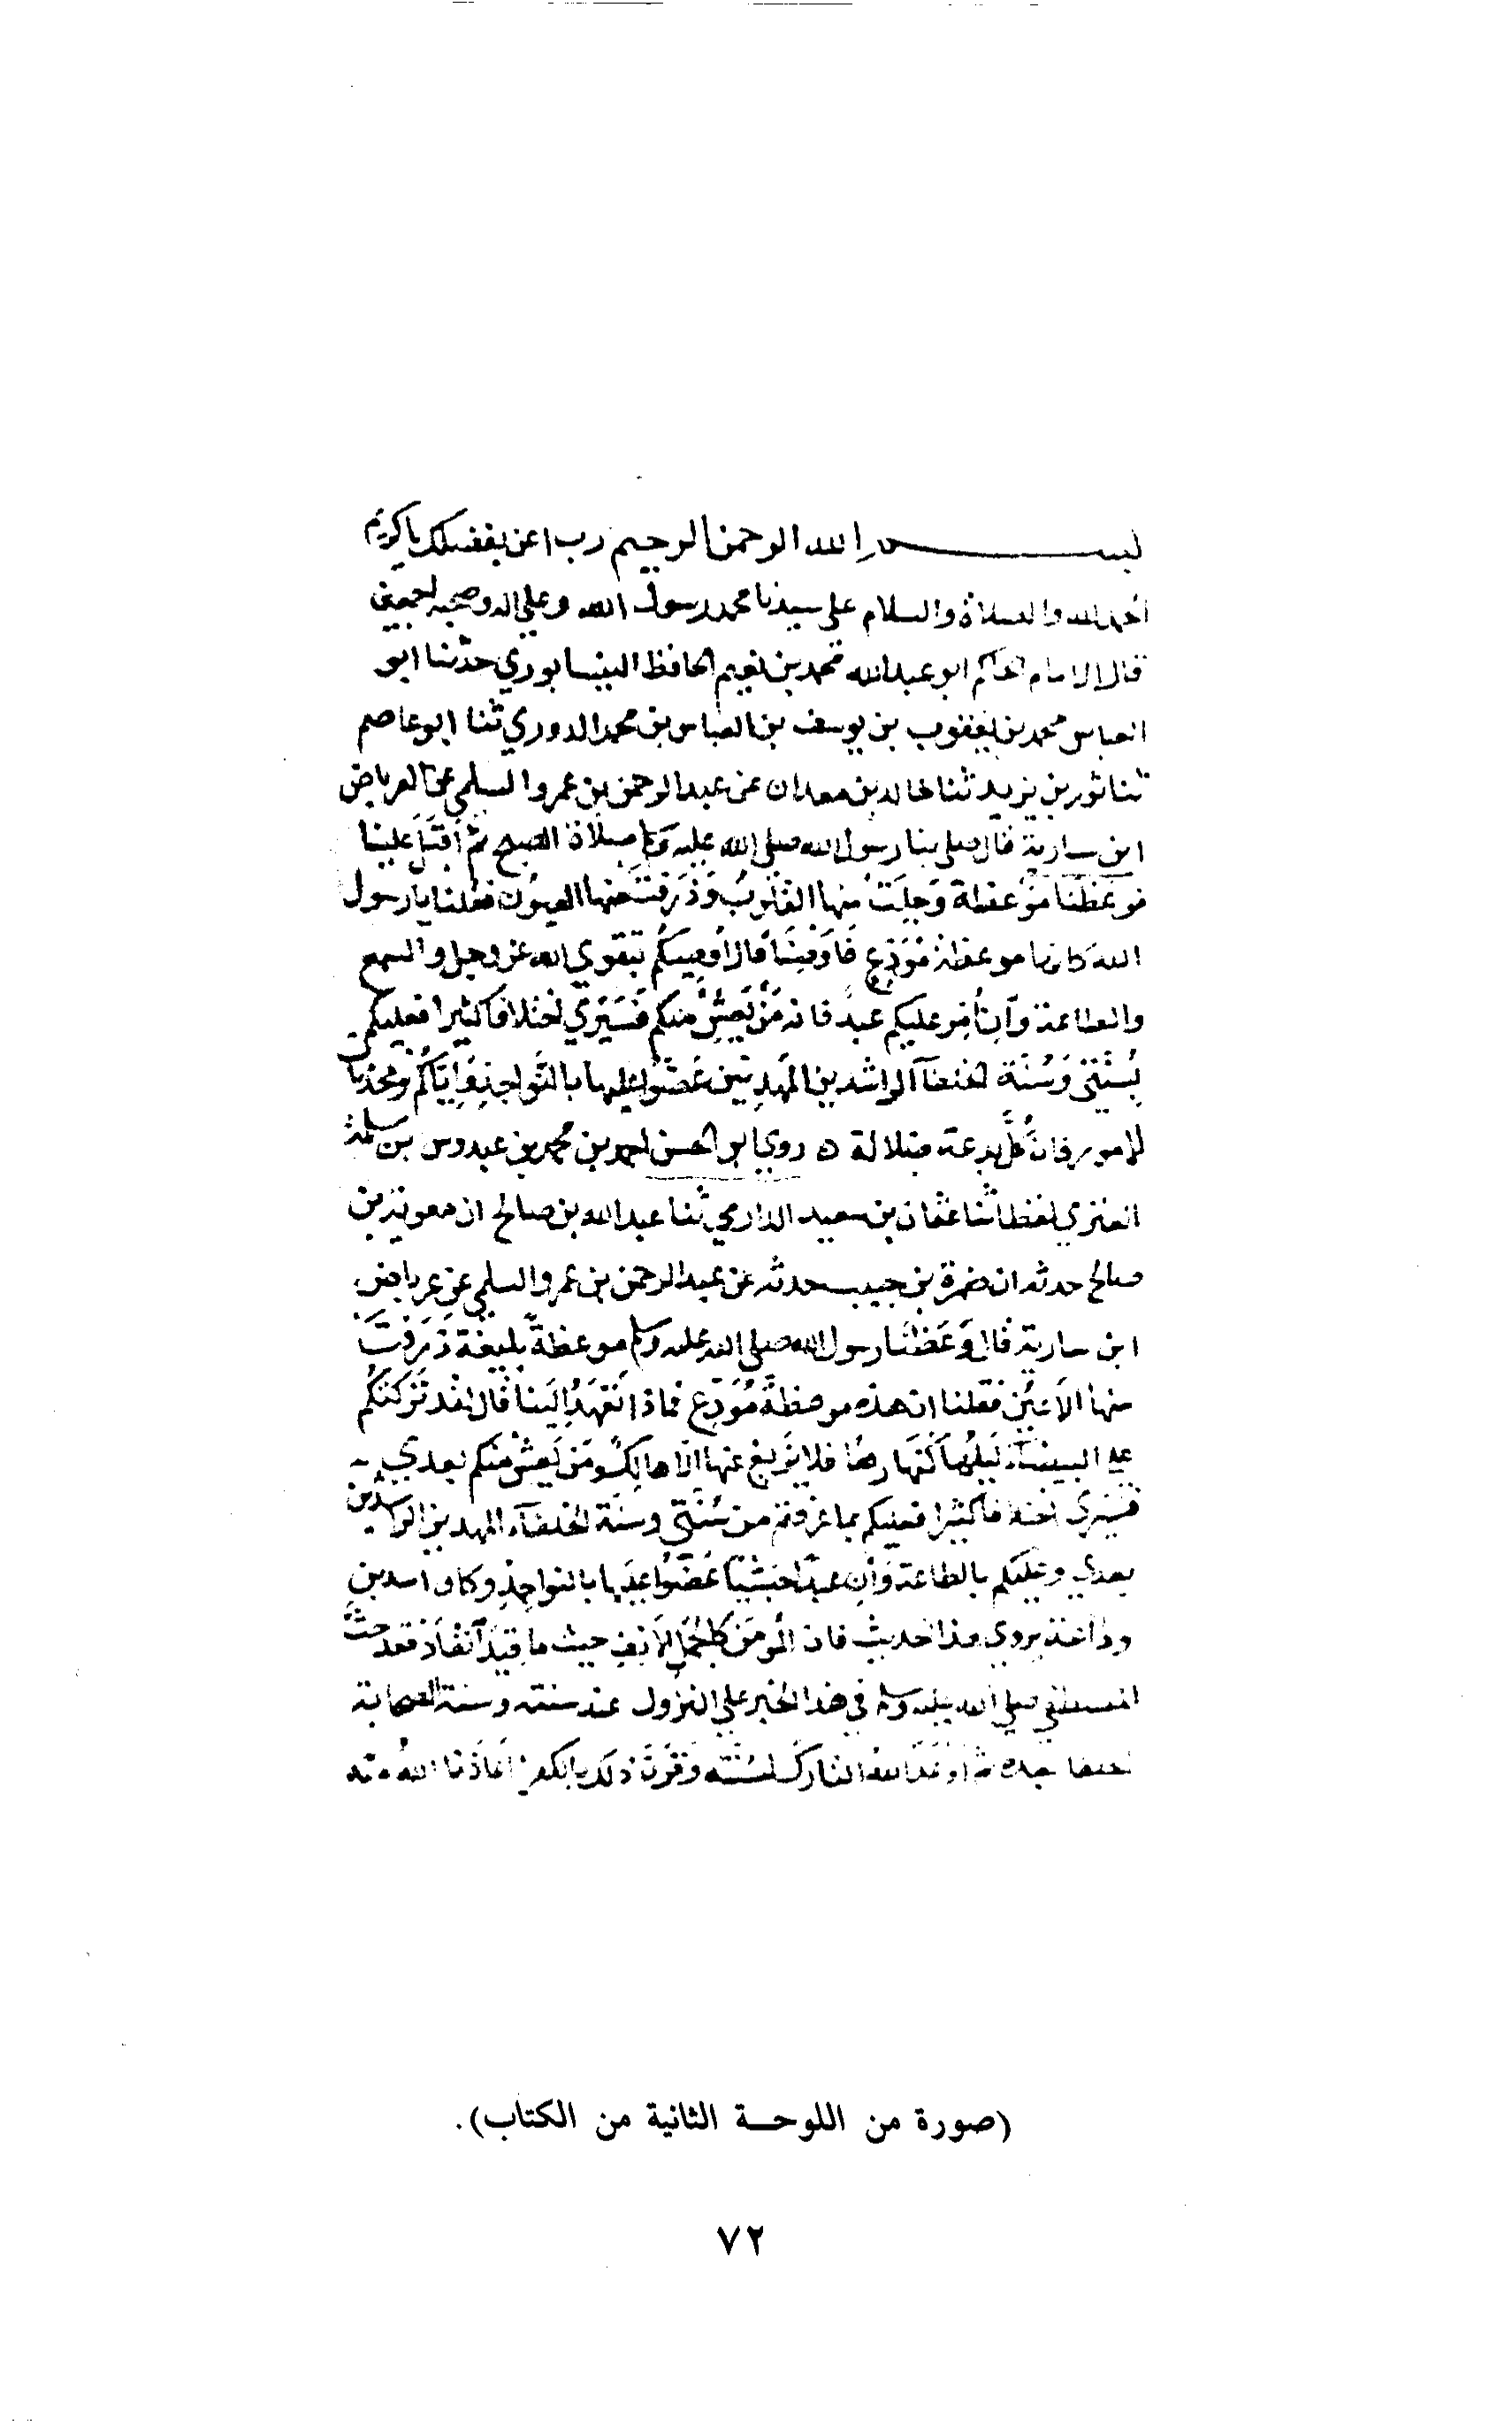 بسم الله الرحمن الرحيم رب اعن بفضلك يا كريم
الحمد لله والصلاة والسلام على سيدنا محمد رسول الله وعلي اله وصحبه اجمعين
قال الامام الحاكم ابو عبد الله محمد بن نعيم الحافظ النيسابوري حدثنا ابو
العباس محمد بن يعقوب بن يوسف بن العباس بن محمد الدوري ثنا ابو عاصم
ثنا ثور بن يزيد ثنا خالد بن معدان عن عبد الرحمن بن عمرو السلمي عن العرباض
ابن سارية قال صلى بنا رسول الله صلي الله عليه وسلم صلاة الصبح ثم أقبَل علينا
فوعَظَنا موْعظة وَجِلَتْ منها القلوبُ وَذَرَفَتْ منها العيوُن فقلنا يا رسول
الله كانها موعظة مُوَدِّعٍ فَاَوْصِنَا قال أُوصِيكُم بتقوي الله عز وجل والسمع
والطاعة وَاِن أُمِّر عليكم عبدٌ فانه مَنْ يَعِشْ منكم فَسَيَرَي اختلافا كثيرا فعليكم
بِسُنَّتي وَسُنّة الخلفآ الراشدين المَهدِيّين عَضّوا عليها بالنَّواجذِ وَاِيّاكُم ومحدثات
الامور فان كُلَّ بدعة ضلالة ه روي ابو الحسن احمد بن محمد بن عبدوس بن سلمة
العنزي لفظا ثنا عثمان بن سعيد الدارمي ثنا عبد الله بن صالح ان معوية بن
صالح حدثه ان ضمرة بن حبيب حدثه عن عبد الرحمن بن عمرو السلمي عن عرباض
ابن سارية قال وَعَظَنَا رسول الله صلي الله عليه وسلم موعظةً بليغة ذَرَفَتْ
منها الاَعيُن فقلنا ان هذه موعظةُ مُوَدِّعٍ فماذا تَعْهَدُ اِلَينا قال لقد تَرَكتُكُم
علي البيضآء لَيلُهَا كنَهَارِهَا فلا يَزيغ عنها اِلّا هالِكٌ وَمَن يَعِشْ منكم بعدي
فسَيَري اختلافا كثيرا فعليكم بما عرفتم من سُنَّتي وسنّة الخلفآء المهديين الراشدين
بعدي وعَليكم بالطاعة وَاِن عبدًا حَبَشيّا عَضّوا عليها بالنواجذِ وكان اسد بن
وداعة يروي هذا الحديث فان المُومَن كالجَمَلِ الاَنِفِ حيث ما قِيْدَ انْقَادَ فقد حَثَّ
المصطفي صلي الله عليه وسلم في هذا الخبر علي النزول عند سنته وسنة الصحابة
الخلفا بعده ثم اوعَدَ الله التارك لسُنَّته وَقرَنَ ذلك بالكفر أعَاذَنا اللهُ منه
(صورة من اللوحــة الثانية من الكتاب).
٧٢